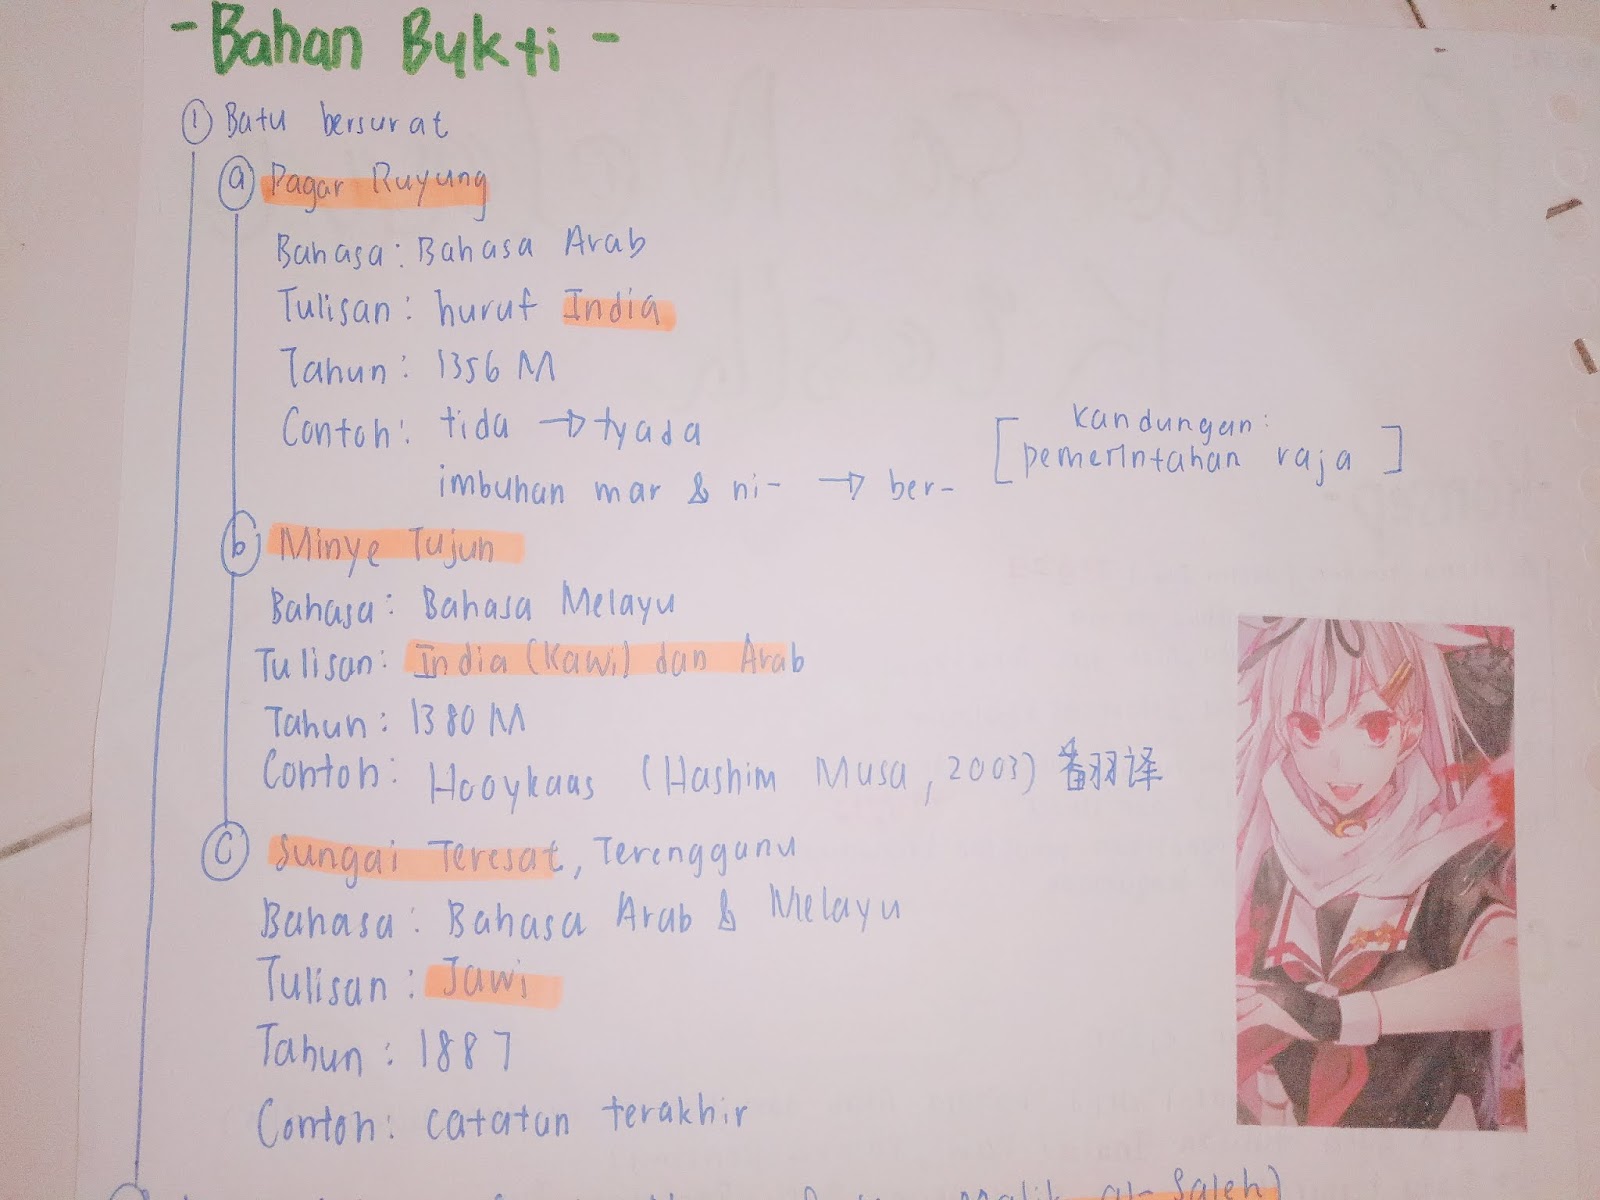 - Bahan Bukti -
① Batu bersurat
ⓐ Pagar Ruyung
Bahasa: Bahasa Arab
Tulisan: huruf India
Tahun: 1356 M
Contoh: tida → tyada
imbuhan mar & ni- → ber-
[kandungan:
pemerintahan raja]
ⓑ Minye Tujun
Bahasa: Bahasa Melayu
Tulisan: India (Kawi) dan Arab
Tahun: 1380 M
Contoh: Hooykaas (Hashim Musa, 2003) 翻译
ⓒ Sungai Teresat, Terengganu
Bahasa: Bahasa Arab & Melayu
Tulisan: Jawi
Tahun: 1887
Contoh: catatan terakhir
Malik al-Saleh)